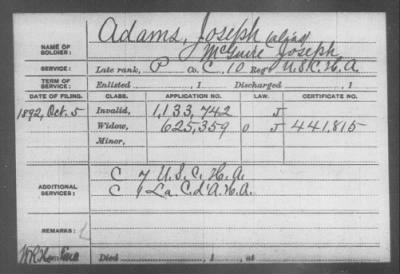 Adams, Joseph alias
NAME OF SOLDIER: McGuire Joseph
SERVICE: Late rank, P Co. C, 10 Reg't U.S.C.H.A.
TERM OF SERVICE: Enlisted , 1 Discharged , 1
DATE OF FILING. CLASS. APPLICATION NO. LAW. CERTIFICATE NO.
1892, Oct. 5 Invalid, 1,133,742 J
Widow, 625,359 O J 441,815
Minor,
ADDITIONAL SERVICES: C 7 U.S.C.H.A.
C 1 La. C. d'A. H.A.
REMARKS:
Died , 1 , at